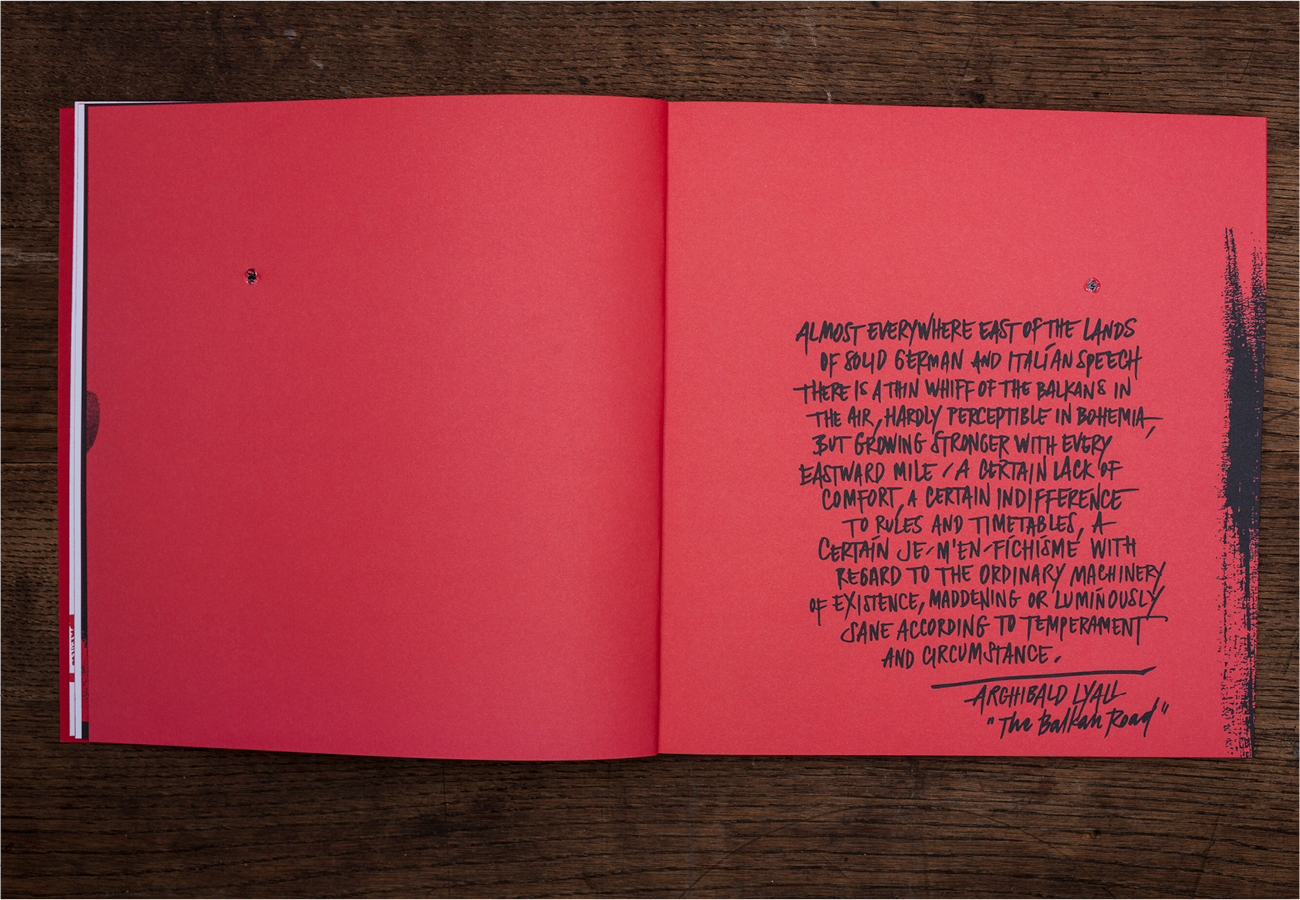 ALMOST EVERYWHERE EAST OF THE LANDS
OF SOLID GERMAN AND ITALIAN SPEECH
THERE IS A THIN WHIFF OF THE BALKANS IN
THE AIR, HARDLY PERCEPTIBLE IN BOHEMIA,
BUT GROWING STRONGER WITH EVERY
EASTWARD MILE - A CERTAIN LACK OF
COMFORT, A CERTAIN INDIFFERENCE
TO RULES AND TIMETABLES, A
CERTAIN JE-M'EN-FICHISME WITH
REGARD TO THE ORDINARY MACHINERY
OF EXISTENCE, MADDENING OR LUMINOUSLY
SANE ACCORDING TO TEMPERAMENT
AND CIRCUMSTANCE.
ARCHIBALD LYALL
"The Balkan Road"